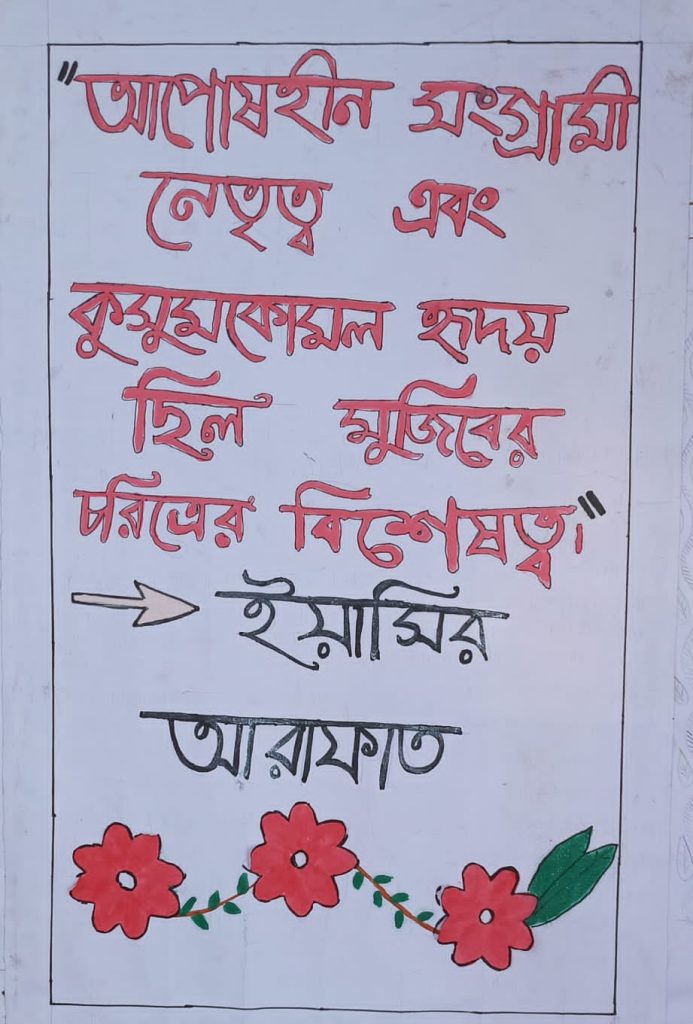 "আপোষহীন সংগ্রামী
নেতৃত্ব এবং
কুসুমকোমল হৃদয়
ছিল মুজিবের
চরিত্রের বিশেষত্ব।"
ইয়াসির
আরাফাত